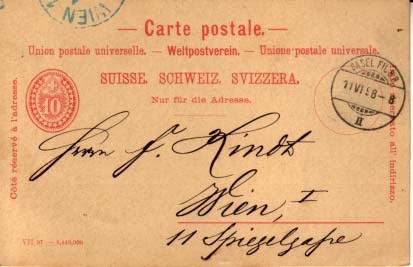 WIEN
— Carte postale. —
Union postale universelle. — Weltpostverein. — Unione postale universale.
SUISSE. SCHWEIZ. SVIZZERA.
Nur für die Adresse.
10
Côté réservé à l'adresse.
BASEL
11 VI 98-8
II
all' indirizzo.
Herrn J. Kindt
Wien, I
11 Spiegelgasse
VII 97 — 1,440,000